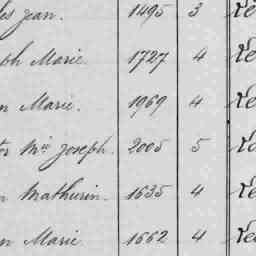 les Jean. 1495 3
ph Marie 1727 4
n Marie. 1969 4
or Mie Joseph. 2005 5
n Mathurin. 1635 4
n Marie 1662 4